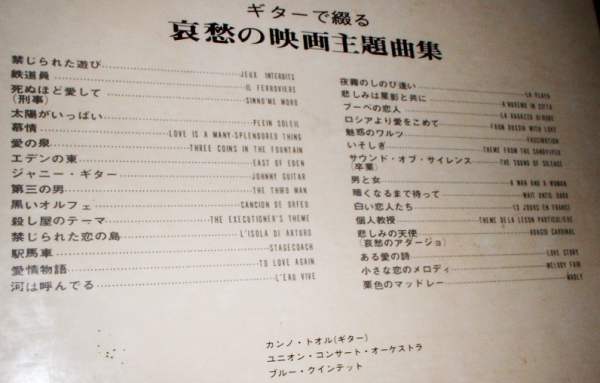 ギターで綴る
哀愁の映画主題曲集
禁じられた遊び JEUX INTERDITS
鉄道員 IL FERROVIERE
死ぬほど愛して
(刑事) SINNO'ME MORO
太陽がいっぱい PLEIN SOLEIL
慕情 LOVE IS A MANY-SPLENDORED THING
愛の泉 THREE COINS IN THE FOUNTAIN
エデンの東 EAST OF EDEN
ジャニー・ギター JOHNNY GUITAR
第三の男 THE THIRD MAN
黒いオルフェ CANCION DE ORFEO
殺し屋のテーマ THE EXECUTIONER'S THEME
禁じられた恋の島 L'ISOLA DI ARTURO
駅馬車 STAGECOACH
愛情物語 TO LOVE AGAIN
河は呼んでる L'EAU VIVE
夜霧のしのび逢い LA PLAYA
悲しみは星影と共に ANDREMO IN CITTA
ブーベの恋人 LA RAGAZZA DI BUBE
ロシアより愛をこめて FROM RUSSIA WITH LOVE
魅惑のワルツ FASCINATION
いそしぎ THEME FROM THE SANDPIPER
サウンド・オブ・サイレンス THE SOUND OF SILENCE
(卒業)
男と女 A MAN AND A WOMAN
暗くなるまで待って WAIT UNTIL DARK
白い恋人たち 13 JOURS EN FRANCE
個人教授 THEME DE LA LECON PARTICULIERE
悲しみの天使 ADAGIO CARDINAL
(哀愁のアダージョ)
ある愛の詩 LOVE STORY
小さな恋のメロディ MELODY FAIR
栗色のマッドレー MADLY
カンノ・トオル(ギター)
ユニオン・コンサート・オーケストラ
ブルー・クインテット